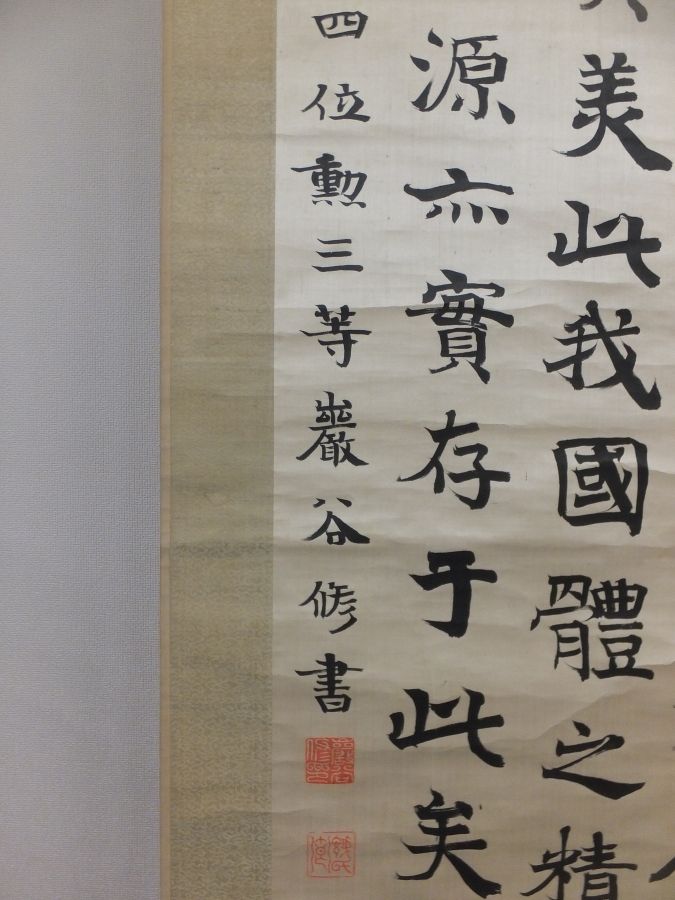 美此我國體之精
源亦實存于此矣
四位勲三等巖谷修書